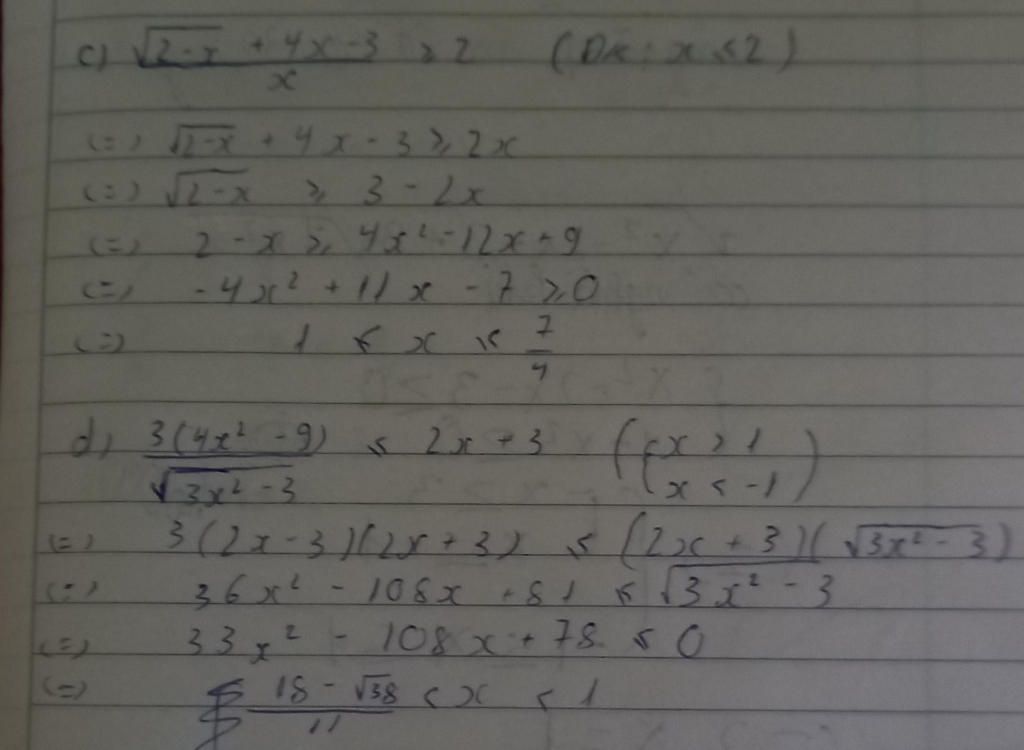 c) (√(2-x) + 4x - 3)/x ≥ 2 (Đk: x ≤ 2)
(=) √(2-x) + 4x - 3 ≥ 2x
(=) √(2-x) ≥ 3 - 2x
(=) 2 - x ≥ 4x² - 12x + 9
(=) -4x² + 11x - 7 ≥ 0
(=) 1 ≤ x ≤ 7/4
d) 3(4x² - 9)/√(3x² - 3) ≤ 2x + 3 (x > 1
x < -1)
(=) 3(2x - 3)(2x + 3) ≤ (2x + 3)(√(3x² - 3))
(=) 36x² - 108x + 81 ≤ √(3x² - 3)
(=) 33x² - 108x + 78 ≤ 0
(=) (18 - √38)/11 < x < 1